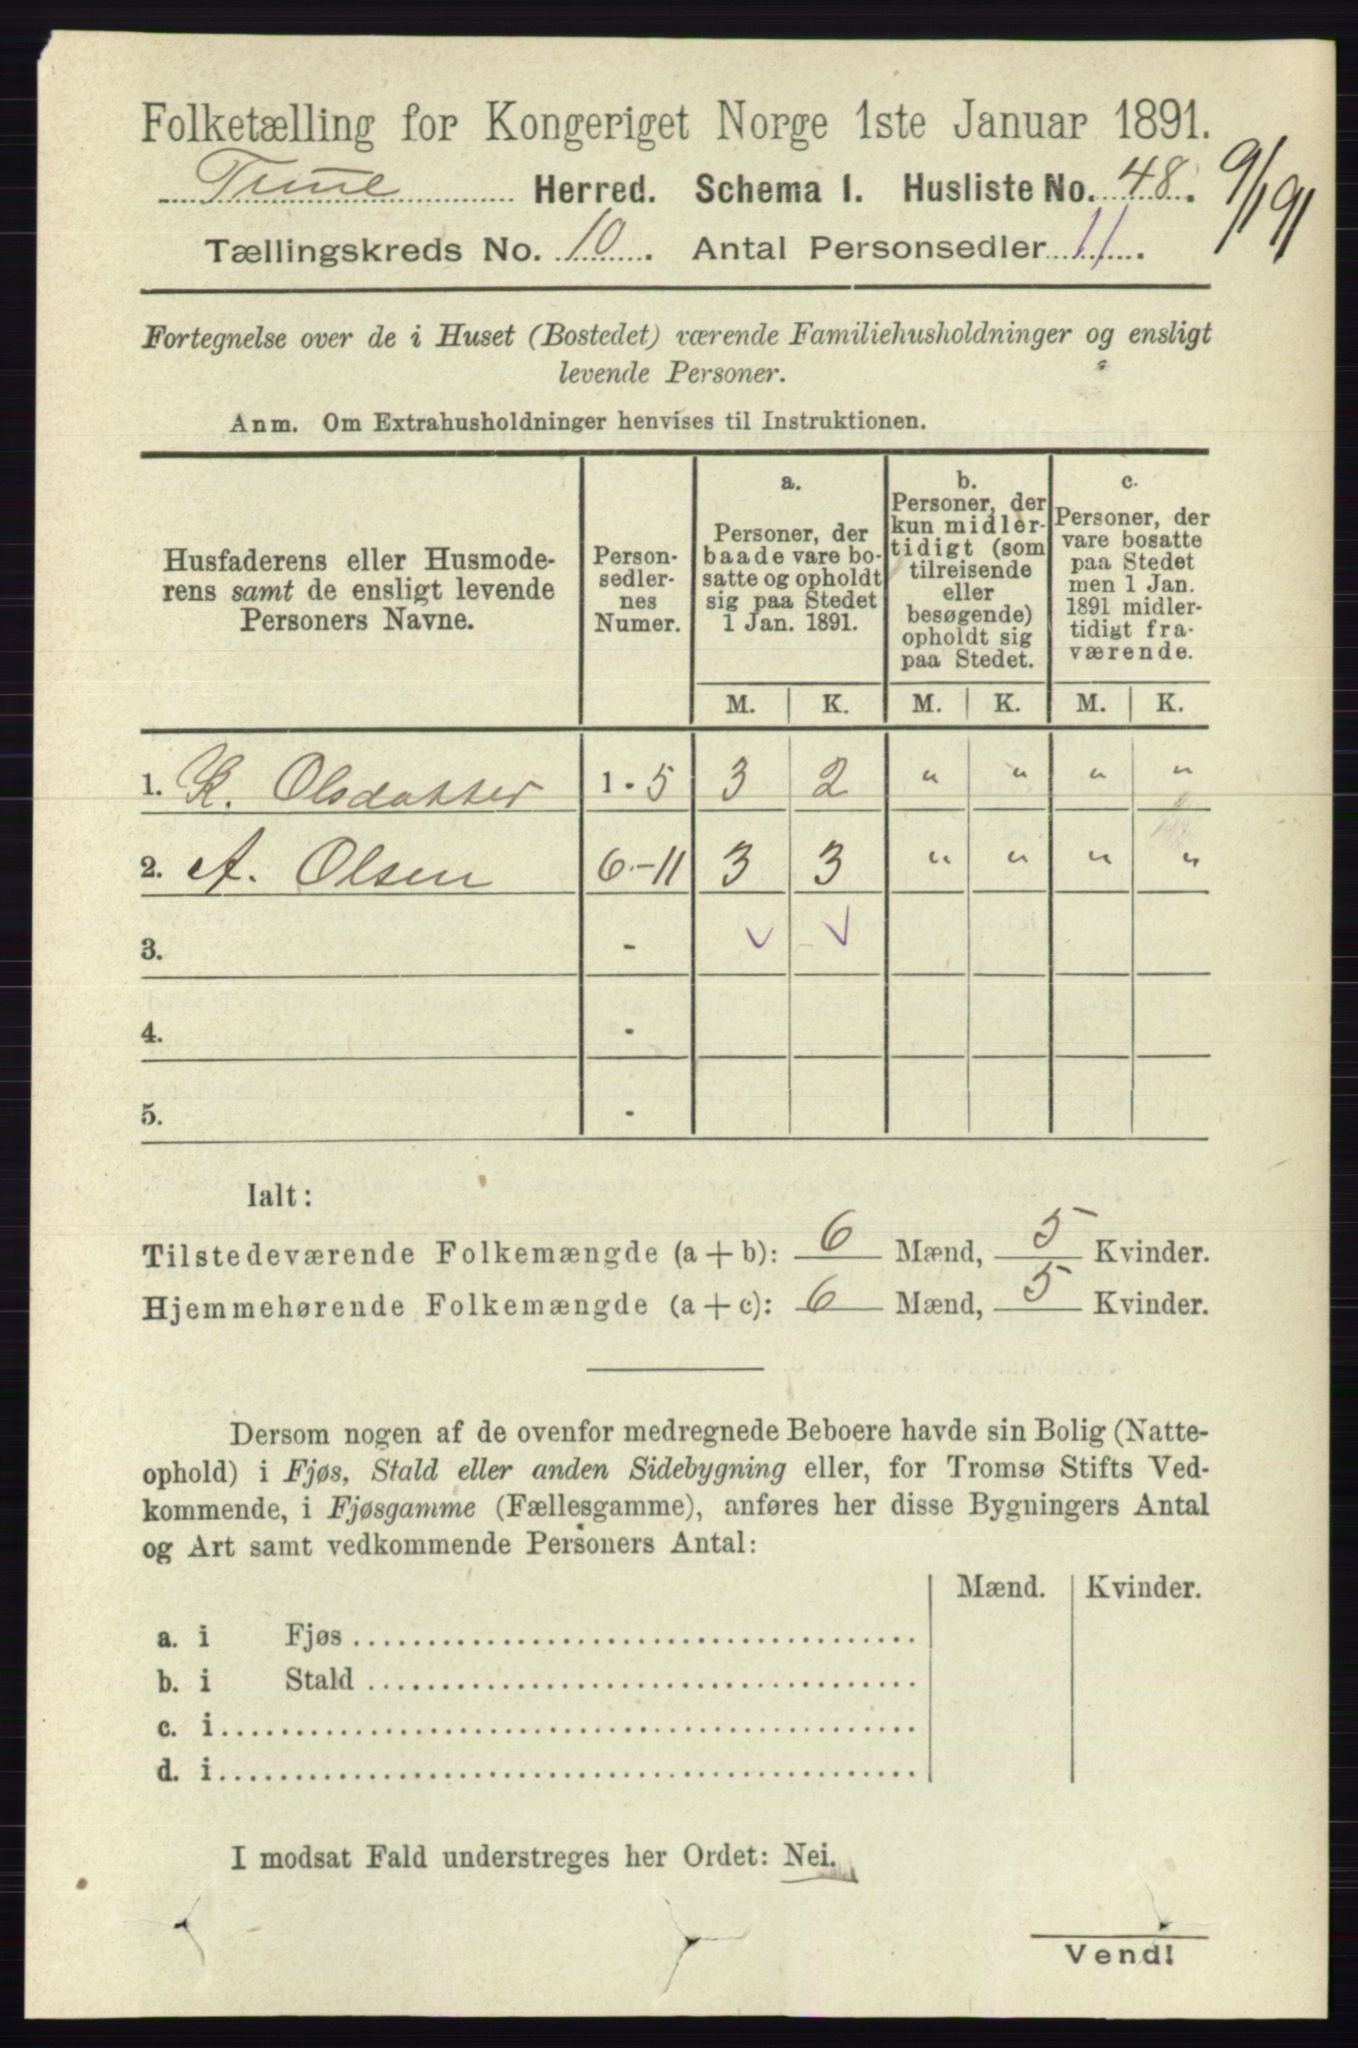 Folketælling for Kongeriget Norge 1ste Januar 1891.
Tune Herred. Schema I. Husliste No. 48.
9/1 91
Tællingskreds No. 10. Antal Personsedler 11.
Fortegnelse over de i Huset (Bostedet) værende Familiehusholdninger og ensligt
levende Personer.
Anm. Om Extrahusholdninger henvises til Instruktionen.
Husfaderens eller Husmode-
rens samt de ensligt levende
Personers Navne.
Person-
sedler-
nes
Numer.
a.
Personer, der
baade vare bo-
satte og opholdt
sig paa Stedet
1 Jan. 1891.
b.
Personer, der
kun midler-
tidigt (som
tilreisende
eller
besøgende)
opholdt sig
paa Stedet.
c.
Personer, der
vare bosatte
paa Stedet
men 1 Jan.
1891 midler-
tidigt fra-
værende.
M. K. M. K. M. K.
1. K. Olsdatter 1 - 5 3 2 " " " "
2. A. Olsen 6 - 11 3 3 " " " "
3. - √ √
4. -
5. -
Ialt:
Tilstedeværende Folkemængde (a + b): 6 Mænd, 5 Kvinder.
Hjemmehørende Folkemængde (a + c): 6 Mænd, 5 Kvinder.
Dersom nogen af de ovenfor medregnede Beboere havde sin Bolig (Natte-
ophold) i Fjøs, Stald eller anden Sidebygning eller, for Tromsø Stifts Ved-
kommende, i Fjøsgamme (Fællesgamme), anføres her disse Bygningers Antal
og Art samt vedkommende Personers Antal:
Mænd. Kvinder.
a. i Fjøs
b. i Stald
c. i
d. i
I modsat Fald understreges her Ordet: Nei.
Vend!